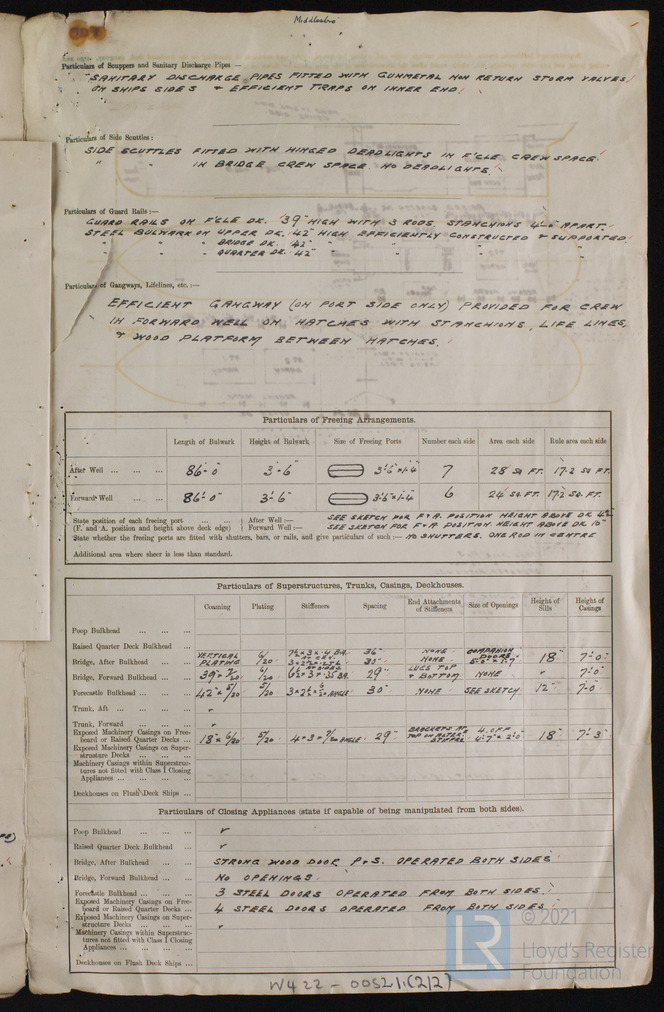 Middlesbro
Particulars of Scuppers and Sanitary Discharge Pipes —
SANITARY DISCHARGE PIPES FITTED WITH GUNMETAL NON RETURN STORM VALVES
ON SHIPS SIDES & EFFICIENT TRAPS ON INNER END.
Particulars of Side Scuttles :
SIDE SCUTTLES FITTED WITH HINGED DEADLIGHTS IN F'CLE CREW SPACE.
" " IN BRIDGE CREW SPACE NO DEADLIGHTS.
Particulars of Guard Rails :—
GUARD RAILS ON F'CLE DK. 39" HIGH WITH 3 RODS, STANCHIONS APART.
STEEL BULWARK ON UPPER DK. 42" HIGH EFFICIENTLY CONSTRUCTED & SUPPORTED.
" " " BRIDGE DK. 42" " " "
" " " QUARTER DK. 42" " " "
Particulars of Gangways, Lifelines, etc. :—
EFFICIENT GANGWAY (ON PORT SIDE ONLY) PROVIDED FOR CREW
IN FORWARD WELL ON HATCHES WITH STANCHIONS, LIFE LINES,
& WOOD PLATFORM BETWEEN HATCHES.
Particulars of Freeing Arrangements.
Length of Bulwark Height of Bulwark Size of Freeing Ports Number each side Area each side Rule area each side
After Well ... ... ... 86'-0" 3'-6" 3'-6" x 1'-4 7 28 SQ FT. 17.2 SQ FT.
Forward Well 86'-0" 3'-6" 3'-6" x 1'-4 6 24 SQ. FT. 17.2 SQ. FT.
State position of each freeing port ... ... After Well :— SEE SKETCH FOR F & A POSITION HEIGHT ABOVE DK
(F. and A. position and height above deck edge) Forward Well :— SEE SKETCH FOR F & A POSITION HEIGHT ABOVE DK 10"
State whether the freeing ports are fitted with shutters, bars, or rails, and give particulars of such :— NO SHUTTERS. ONE ROD IN CENTRE
Additional area where sheer is less than standard.
Particulars of Superstructures, Trunks, Casings, Deckhouses.
Coaming Plating Stiffeners Spacing End Attachments of Stiffeners Size of Openings Height of Sills Height of Casings
Poop Bulkhead ... ... ...
Raised Quarter Deck Bulkhead ...
Bridge, After Bulkhead ... ... VERTICAL PLATING 6/20 36" NONE NONE COMPANION DOORS 18" 7'-0"
Bridge, Forward Bulkhead ... 39" x 7/20 29" LUGS TOP & BOTTOM NONE " 7'-0"
Forecastle Bulkhead ... ... ... 42" x 5/20 5/20 ANGLE 30" NONE SEE SKETCH 12" 7'-0"
Trunk, Aft ... ... ... ...
Trunk, Forward ... ... ...
Exposed Machinery Casings on Free-
board or Raised Quarter Decks ... 18" x 6/20 5/20 4 x 3 x 7/20 ANGLE 29" BRACKETS AT TOP 4. OFF 4'-7" x 2'-0" 18" 7'-3"
Exposed Machinery Casings on Super-
structure Decks ... ... ...
Machinery Casings within Superstruc-
tures not fitted with Class I Closing
Appliances ... ... ... ...
Deckhouses on Flush Deck Ships ...
Particulars of Closing Appliances (state if capable of being manipulated from both sides).
Poop Bulkhead ... ... ...
Raised Quarter Deck Bulkhead ...
Bridge, After Bulkhead ... ... STRONG WOOD DOOR P & S. OPERATED BOTH SIDES
Bridge, Forward Bulkhead ... NO OPENINGS.
Forecastle Bulkhead ... ... ... 3 STEEL DOORS OPERATED FROM BOTH SIDES.
Exposed Machinery Casings on Free-
board or Raised Quarter Decks ... 4 STEEL DOORS OPERATED FROM BOTH SIDES
Exposed Machinery Casings on Super-
structure Decks ... ... ...
Machinery Casings within Superstruc-
tures not fitted with Class I Closing
Appliances ... ... ... ...
Deckhouses on Flush Deck Ships ...
LR © 2021
Lloyd's Register
Foundation
W422 - 0052 1(2/2)